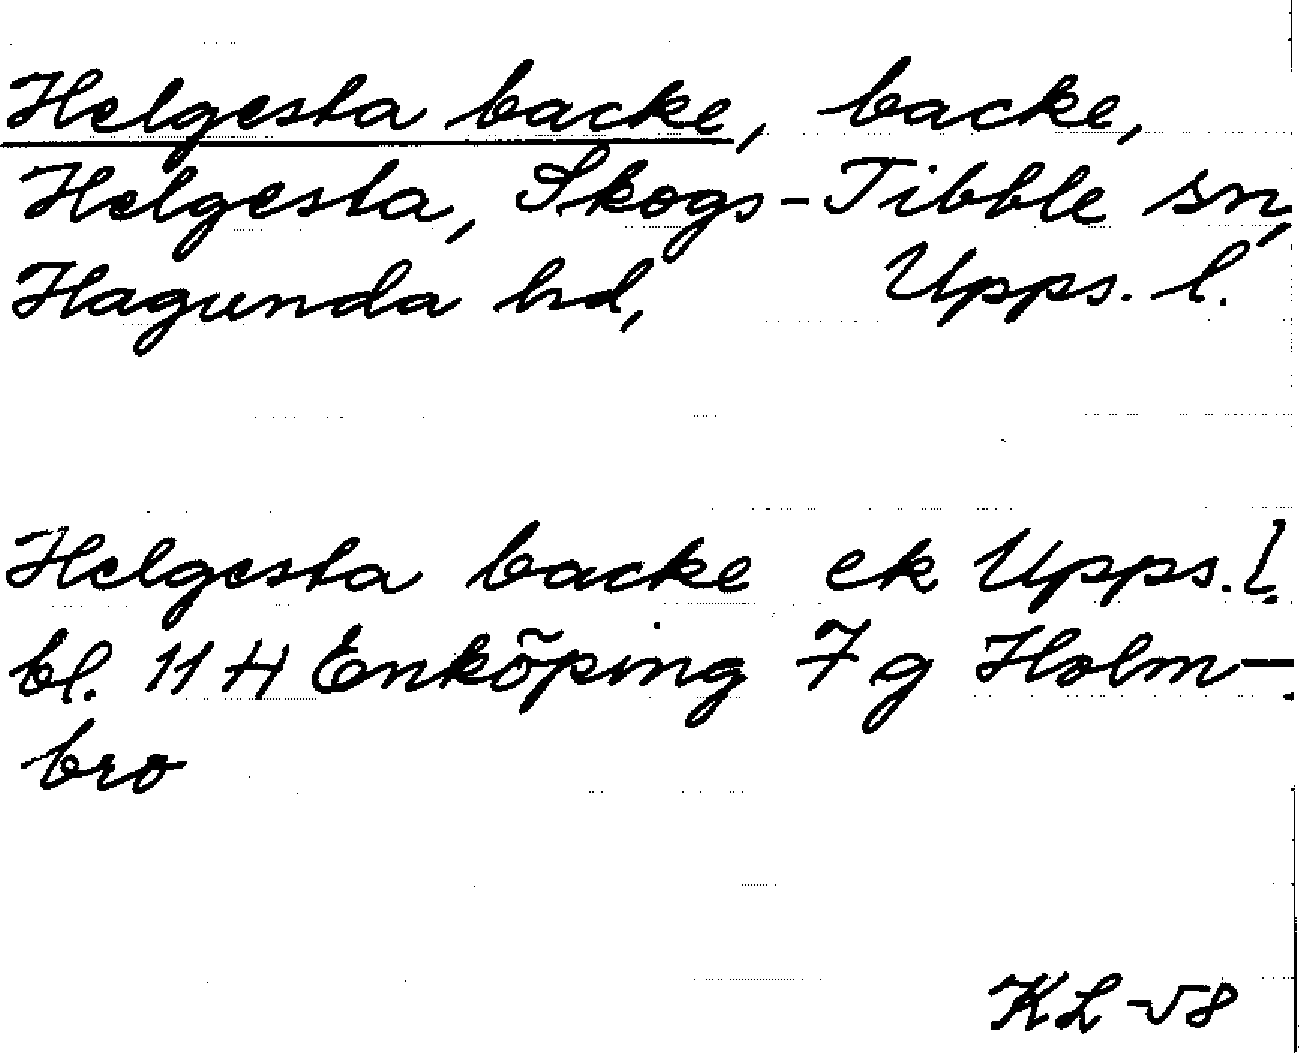 Helgesta backe, backe,
Helgesta, Skogs-Tibble sn,
Hagunda hd, Upps. l.
Helgesta backe ek Upps. l.
bl. 11 H Enköping 7 g Holm-
bro
KL -58